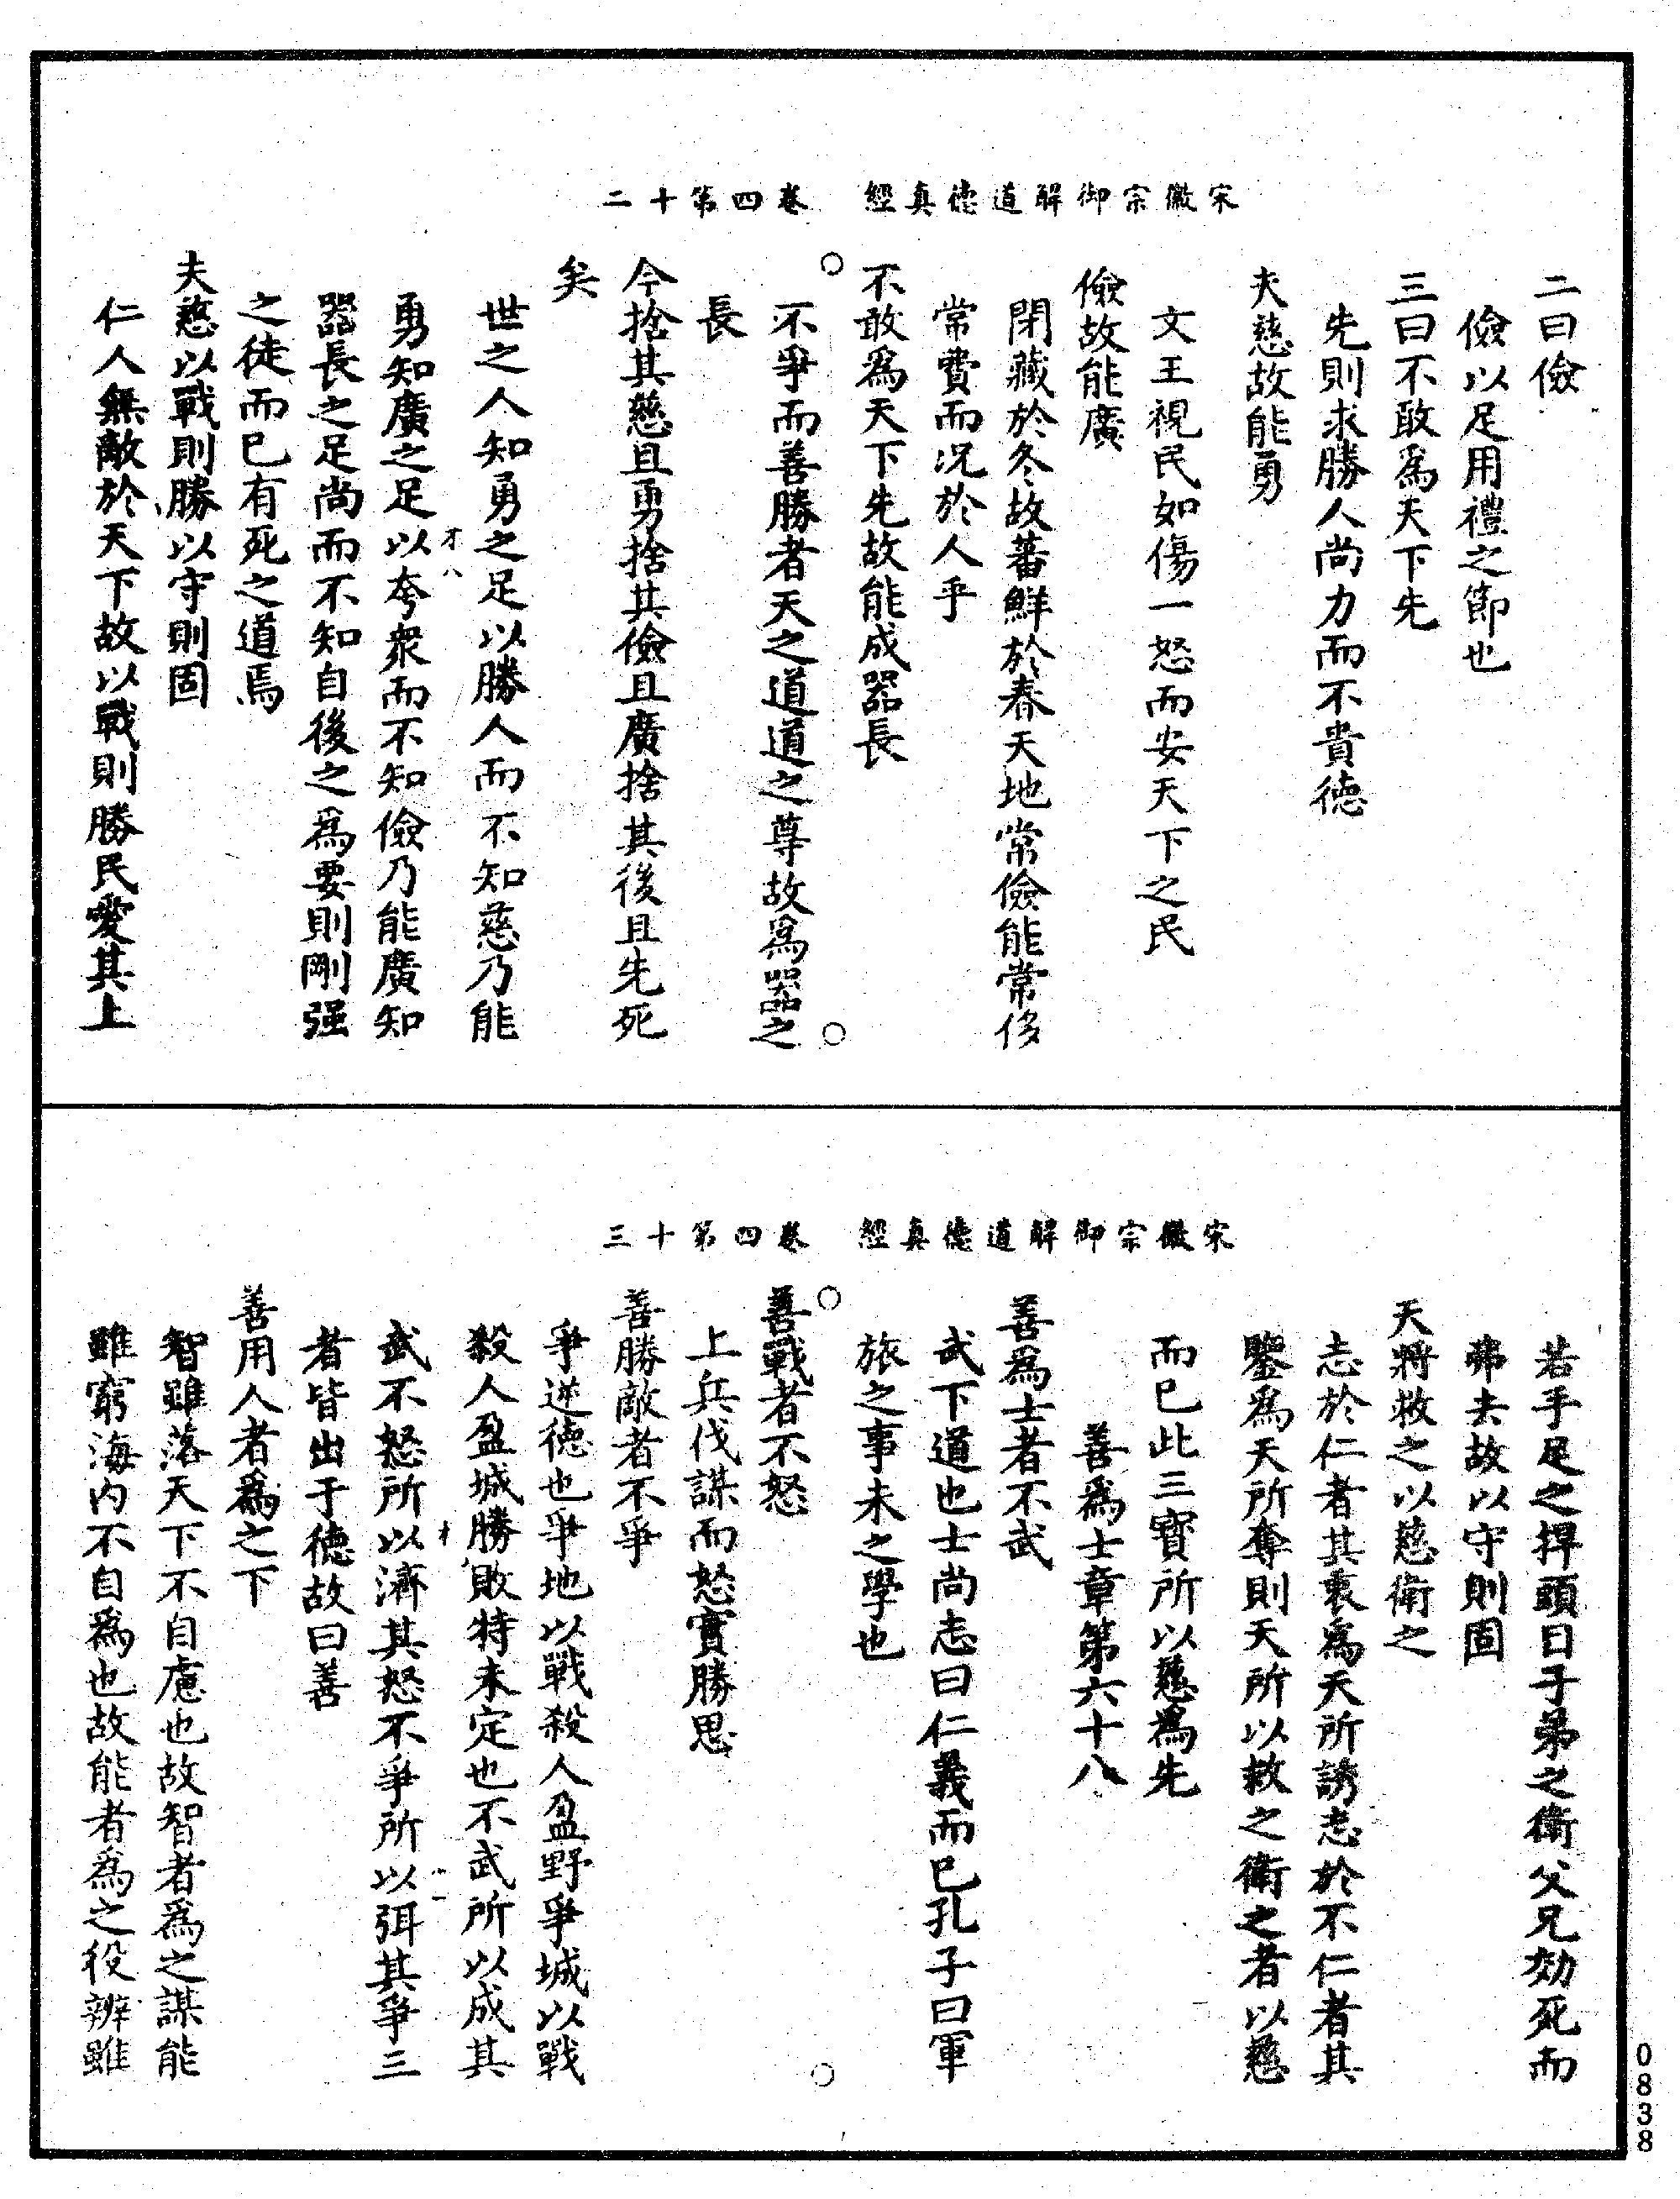 宋徽宗御解道德真經　卷四第十二
二曰儉
儉以足用禮之節也
三曰不敢爲天下先
先則求勝人尚力而不貴德
夫慈故能勇
文王視民如傷一怒而安天下之民
儉故能廣
閉藏於冬故蕃鮮於春天地常儉能常侈
常費而况於人乎
不敢爲天下先故能成器長
不爭而善勝者天之道道之尊故爲器之
長
今捨其慈且勇捨其儉且廣捨其後且先死
矣
世之人知勇之足以勝人而不知慈乃能
勇知廣之足以夸衆而不知儉乃能廣知
才八
器長之足尚而不知自後之爲要則剛强
之徒而已有死之道焉
夫慈以戰則勝以守則固
仁人無敵於天下故以戰則勝民愛其上
宋徽宗御解道德真經　卷四第十三
若手足之捍頭目子弟之衛父兄効死而
弗去故以守則固
天將救之以慈衛之
志於仁者其衷爲天所誘志於不仁者其
鑒爲天所奪則天所以救之衛之者以慈
而已此三寶所以慈爲先
善爲士章第六十八
善爲士者不武
武下道也士尚志曰仁義而已孔子曰軍
旅之事未之學也
善戰者不怒
上兵伐謀而怒實勝思
善勝敵者不爭
爭逆德也爭地以戰殺人盈野爭城以戰
殺人盈城勝敗特未定也不武所以成其
武不怒所以濟其怒不爭所以弭其爭三
者皆出于德故曰善
善用人者爲之下
智雖落天下不自慮也故智者爲之謀能
雖窮海内不自爲也故能者爲之役辨雖
0838